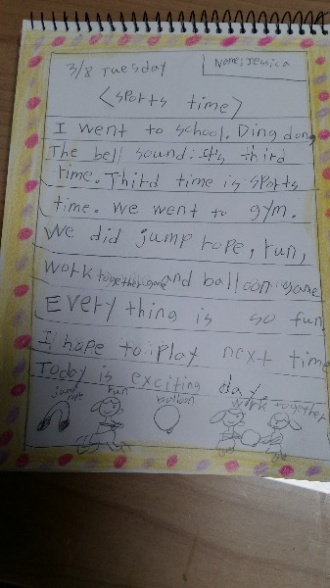 3/8 Tuesday
Name: Jessica
<sports time>
I went to school. Ding dong
The bell sound. It's third
time. Third time is sports
time. We went to gym.
We did jump rope, run,
work together game and balloon game
Every thing is so fun
I hope to play next time
Today is exciting day.
jump run balloon work together